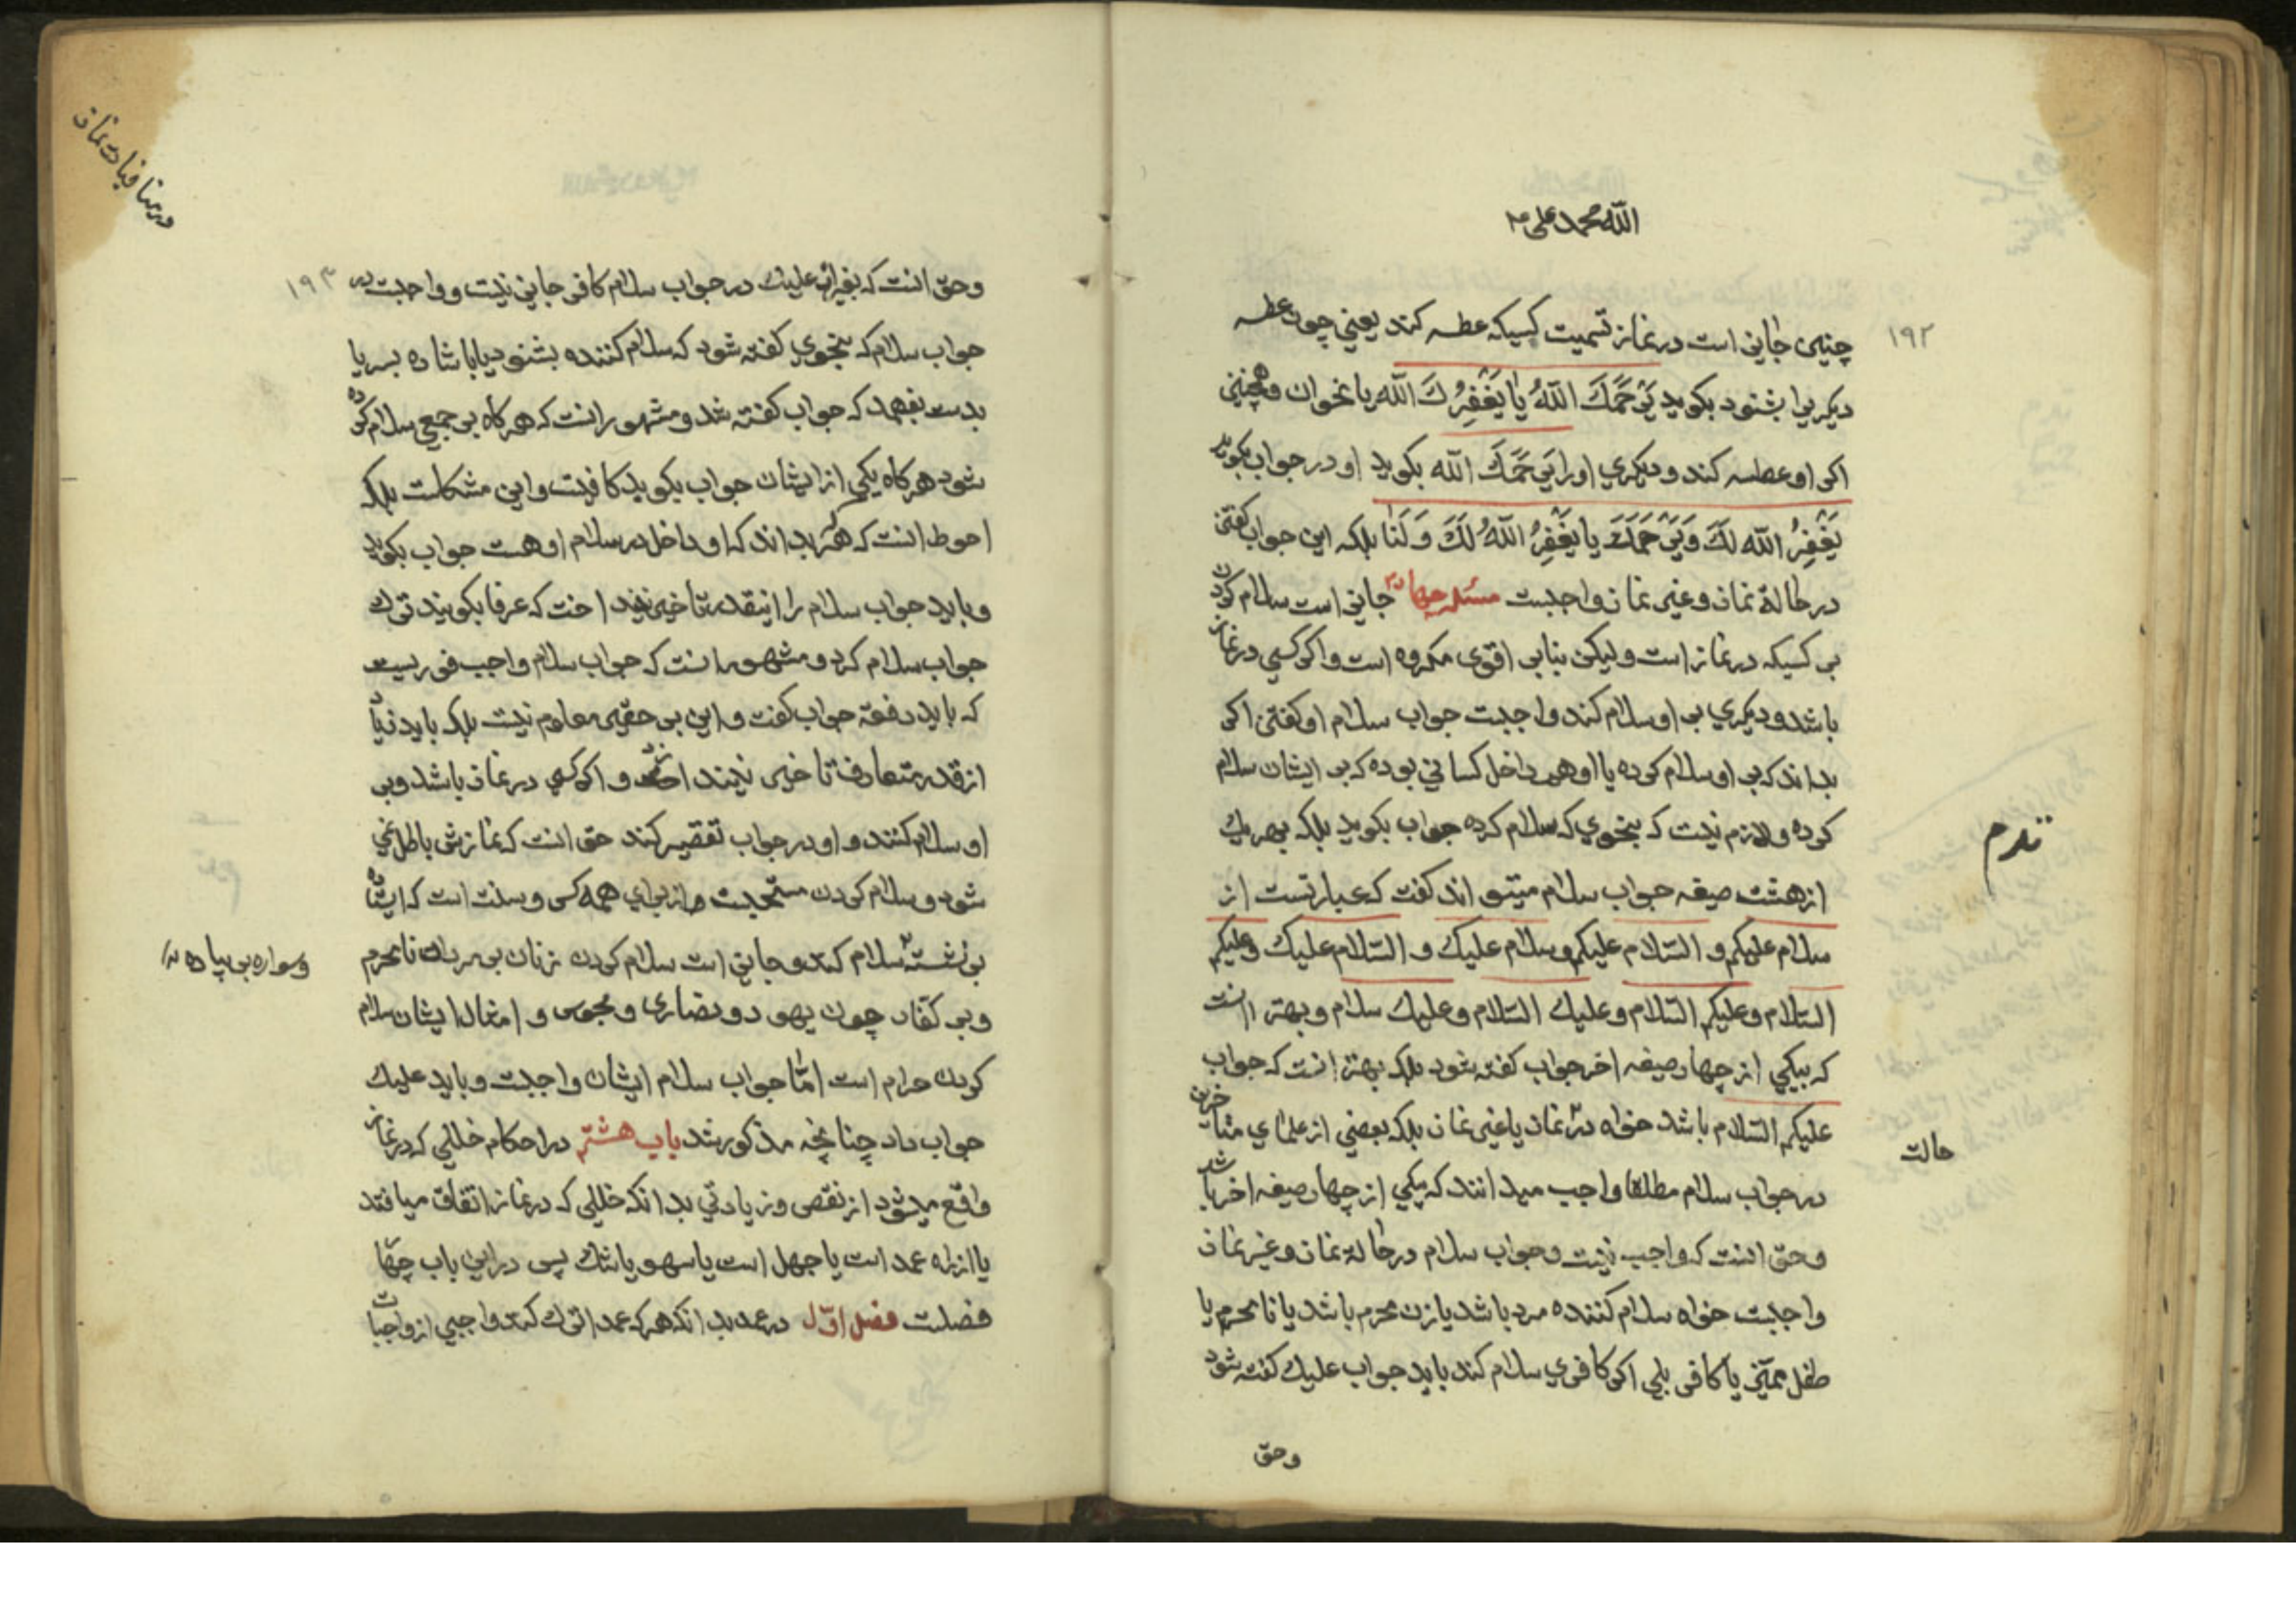 الله محمد علی
۱۹۲
چنین جاینی است در نماز تسمیت کسیکه عطسه کند یعنی چون عطسه
دیگریرا بشنود بکوید یَرحَمُكَ اللّهُ یا یَغفِرُ لَكَ الله یا نحوان و همچنین
اکر او عطسه کند و دیکری اورا یَرحَمُكَ الله بکوید او در جواب بکوید
یَغفِرُ الله لَكَ وَیَرحَمُكَ یا یَغفِرُ اللّهُ لَكَ وَلَنا بلکه این جواب کفتن
در حالة نماز و غیر نماز واجبست مسئله چهارم جاینی است سلام کردن
بر کسیکه در نماز است ولیکن بنابر اقوی مکروه است و اکر کسی در نماز
باشد و دیکری بر او سلام کند واجبست جواب سلام او کفتن اکر
بداند که بر او سلام کرده یا او هم داخل کسانی بوده که بر ایشان سلام
کرده و لازم نیست که بنحوی که سلام کرده جواب بکوید بلکه بهر یك
از هشت صیغه جواب سلام میتواند کفت که عبارتست از
سلام علیکم و السّلام علیکم و سلام علیك و السّلام علیك وعلیکم
السّلام وعلیکم السّلام وعلیك السّلام وعلیك سلام و بهتر انست
که بیکی از چهار صیغه اخر جواب کفته شود بلکه بهتر انست که جواب
علیکم السّلام باشد خواه در نماز یا غیر نماز بلکه بعضی از علمای متاخرین
در جواب سلام مطلقا واجب میدانند که بیکی از چهار صیغه اخر باشد
وحق انست که واجب نیست و جواب سلام در حالة نماز و غیر نماز
واجبست خواه سلام کننده مرد باشد یا زن محرم باشد یا نامحرم یا
طفل ممیّز یا کافر بلی اکر کافری سلام کند باید جواب علیك کفته شود
وحق
حالت
در منافیات نماز
۱۹۳
وحق انست که بغیر از علیك در جواب سلام کافر جایز نیست و واجبست در
جواب سلام که بنحوی کفته شود که سلام کننده بشنود یا با شاره بسر یا
بدست بفهمد که جواب کفته شد و مشهور انست که هر کاه بر جمعی سلام کرده
شود هر کاه یکی از ایشان جواب بکوید کافیست و این مشکلست بلکه
احوط انست که هر که بداند که او داخل در سلام او هست جواب بکوید
و باید جواب سلام را اینقدر تاخیر نیند اخت که عرفا بکویند ترك
جواب سلام کرد و مشهور انست که جواب سلام واجب فوریست
که باید دفعة جواب کفت و این بر حقیر معلوم نیست بلکه باید زیاد
از قدر متعارف تاخیر نیند اخت و اکر کسی در نماز باشد و بر
او سلام کنند و او در جواب تقصیر کند حق انست که نمازش باطل نمی
شود و سلام کردن مستحبست از برای همه کس و سنت است که ایستاده
بر نشسته سلام کند و جایز است سلام کردن زنان بر مردان نامحرم
و سواره بر پیاده
و بر کفار چون یهود و نصاری و مجوس و امثال ایشان سلام
کردن حرام است امّا جواب سلام ایشان واجبست و باید علیك
جواب داد چنانچه مذکور شد باب هشتم در احکام خللی که در نماز
واقع میشود از نقص و زیادتی بدانکه خللی که در نماز اتفاق میافتد
یا از راه عمد است یا جهل است یا سهو یا شك پس در این باب چهار
فصلست فصل اوّل در عمد بدانکه هر که عمدا ترك کند واجبی از واجبات